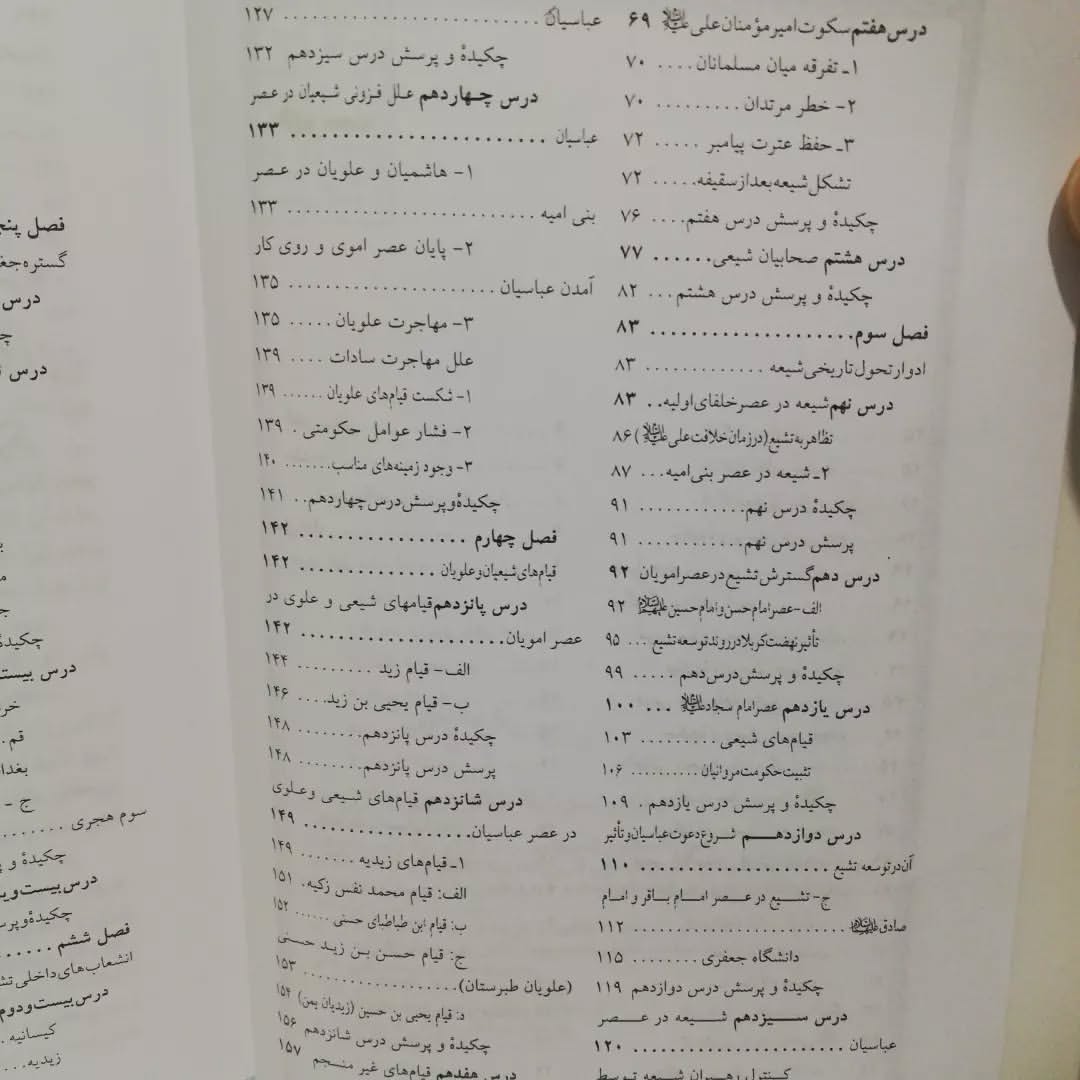 درس هفتم سکوت امیر مؤمنان علی علیه‌السلام ۶۹
۱ـ تفرقه میان مسلمانان .... ۷۰
۲- خطر مرتدان ......... ۷۰
۳ـ حفظ عترت پیامبر ..... ۷۲
تشکل شیعه بعد از سقیفه..... ۷۲
چکیدهٔ و پرسش درس هفتم.... ۷۶
درس هشتم صحابیان شیعی...... ۷۷
چکیدهٔ و پرسش درس هشتم... ۸۲
فصل سوم.................. ۸۳
ادوار تحول تاریخی شیعه ............ ۸۳
درس نهم شیعه در عصر خلفای اولیه.. ۸۳
تظاهر به تشیع (در زمان خلافت علی علیه‌السلام) ۸۶
۲ـ شیعه در عصر بنی امیه... ۸۷
چکیدهٔ درس نهم............ ۹۱
پرسش درس نهم............ ۹۱
درس دهم گسترش تشیع در عصر امویان ۹۲
الف- عصر امام حسن و امام حسین علیهماالسلام ۹۲
تأثیر نهضت کربلا در روند توسعه تشیع ... ۹۵
چکیدهٔ و پرسش درس دهم ..... ۹۹
درس یازدهم عصر امام سجاد علیه‌السلام ... ۱۰۰
قیام‌های شیعی ......... ۱۰۳
تثبیت حکومت مروانیان .......... ۱۰۶
چکیدهٔ و پرسش درس یازدهم . ۱۰۹
درس دوازدهم شروع دعوت عباسیان و تأثیر
آن در توسعه تشیع ................... ۱۱۰
ج- تشیع در عصر امام باقر و امام
صادق علیهماالسلام ...................... ۱۱۲
دانشگاه جعفری ........ ۱۱۵
چکیدهٔ و پرسش درس دوازدهم ۱۱۹
درس سیزدهم شیعه در عصر
عباسیان ...................... ۱۲۰
کنترل رهبران شیعه توسط
عباسیان ......................... ۱۲۷
چکیدهٔ و پرسش درس سیزدهم ۱۳۲
درس چهاردهم علل فزونی شیعیان در عصر
عباسیان ........................ ۱۳۳
۱- هاشمیان و علویان در عصر
بنی امیه ......................... ۱۳۳
۲- پایان عصر اموی و روی کار
آمدن عباسیان ..................... ۱۳۵
۳- مهاجرت علویان ..... ۱۳۵
علل مهاجرت سادات .... ۱۳۹
۱- شکست قیام‌های علویان ...... ۱۳۹
۲- فشار عوامل حکومتی . ۱۳۹
۳- وجود زمینه‌های مناسب....... ۱۴۰
چکیدهٔ و پرسش درس چهاردهم.. ۱۴۱
فصل چهارم ................. ۱۴۲
قیام‌های شیعیان و علویان .............. ۱۴۲
درس پانزدهم قیامهای شیعی و علوی در
عصر امویان..................... ۱۴۲
الف- قیام زید ......... ۱۴۴
ب- قیام یحیی بن زید.... ۱۴۶
چکیدهٔ درس پانزدهم........ ۱۴۸
پرسش درس پانزدهم........ ۱۴۸
درس شانزدهم قیام‌های شیعی و علوی
در عصر عباسیان................. ۱۴۹
۱ـ قیام‌های زیدیه ....... ۱۴۹
الف: قیام محمد نفس زکیه. ۱۵۱
ب: قیام ابن طباطبای حسنی ...... ۱۵۲
ج: قیام حسن بن زید حسنی
(علویان طبرستان)................ ۱۵۳
د: قیام یحیی بن حسین (زیدیان یمن) ۱۵۴
چکیدهٔ و پرسش درس شانزدهم ۱۵۶
درس هفدهم قیام‌های غیر منسجم ۱۵۷
فصل پنج
گستره جغ
درس
چ
درس
چکیدهٔ
درس بیست
خر
قم.
بغدا
ج -
سوم هجری ........
چکیدهٔ و پ
درس بیست و ی
چکیدهٔ و پرس
فصل ششم .....
انشعاب‌های داخلی تش
درس بیست و دوم
کیسانیه .
زیدیه....